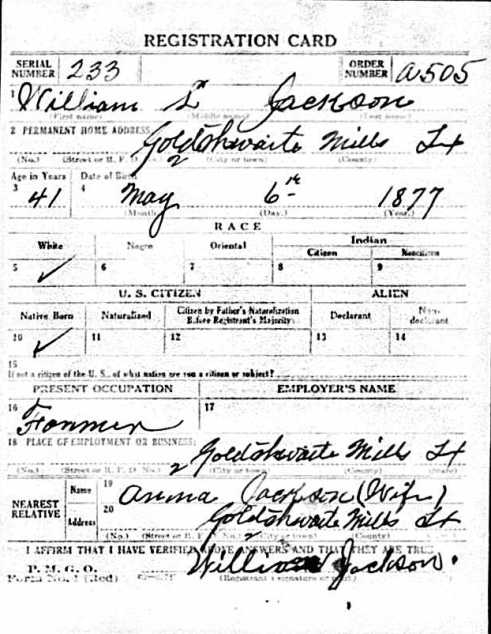 REGISTRATION CARD
SERIAL NUMBER 233 ORDER NUMBER A505
1 William L Jackson
(First name) (Middle name) (Last name)
2 PERMANENT HOME ADDRESS: Goldthwaite Mills Tx
(No.) (Street or R. F. D. No.) 2 (City or town) (County)
Age in Years Date of Birth
3 41 4 May 6th 1877
(Month) (Day.) (Year.)
RACE
White Negro Oriental Indian
Citizen Noncitizen
5 ✓ 6 7 8 9
U. S. CITIZEN ALIEN
Native Born Naturalized Citizen by Father's Naturalization Before Registrant's Majority Declarant Non-declarant
10 ✓ 11 12 13 14
15
If not a citizen of the U. S., of what nation are you a citizen or subject?
PRESENT OCCUPATION EMPLOYER'S NAME
16 Farmer 17
18 PLACE OF EMPLOYMENT OR BUSINESS:
2 Goldthwaite Mills Tx
(No.) (Street or R. F. D. No.) (City or town) (County) (State)
NEAREST RELATIVE Name 19 Anna Jackson (Wife)
Address 20 Goldthwaite Mills Tx
(No.) (Street or R. F. D. No.) 2 (City or town) (County) (State)
I AFFIRM THAT I HAVE VERIFIED ABOVE ANSWERS AND THAT THEY ARE TRUE
P. M. G. O.
Form No. 1 (Red) William Jackson.
(Registrant's signature or mark)